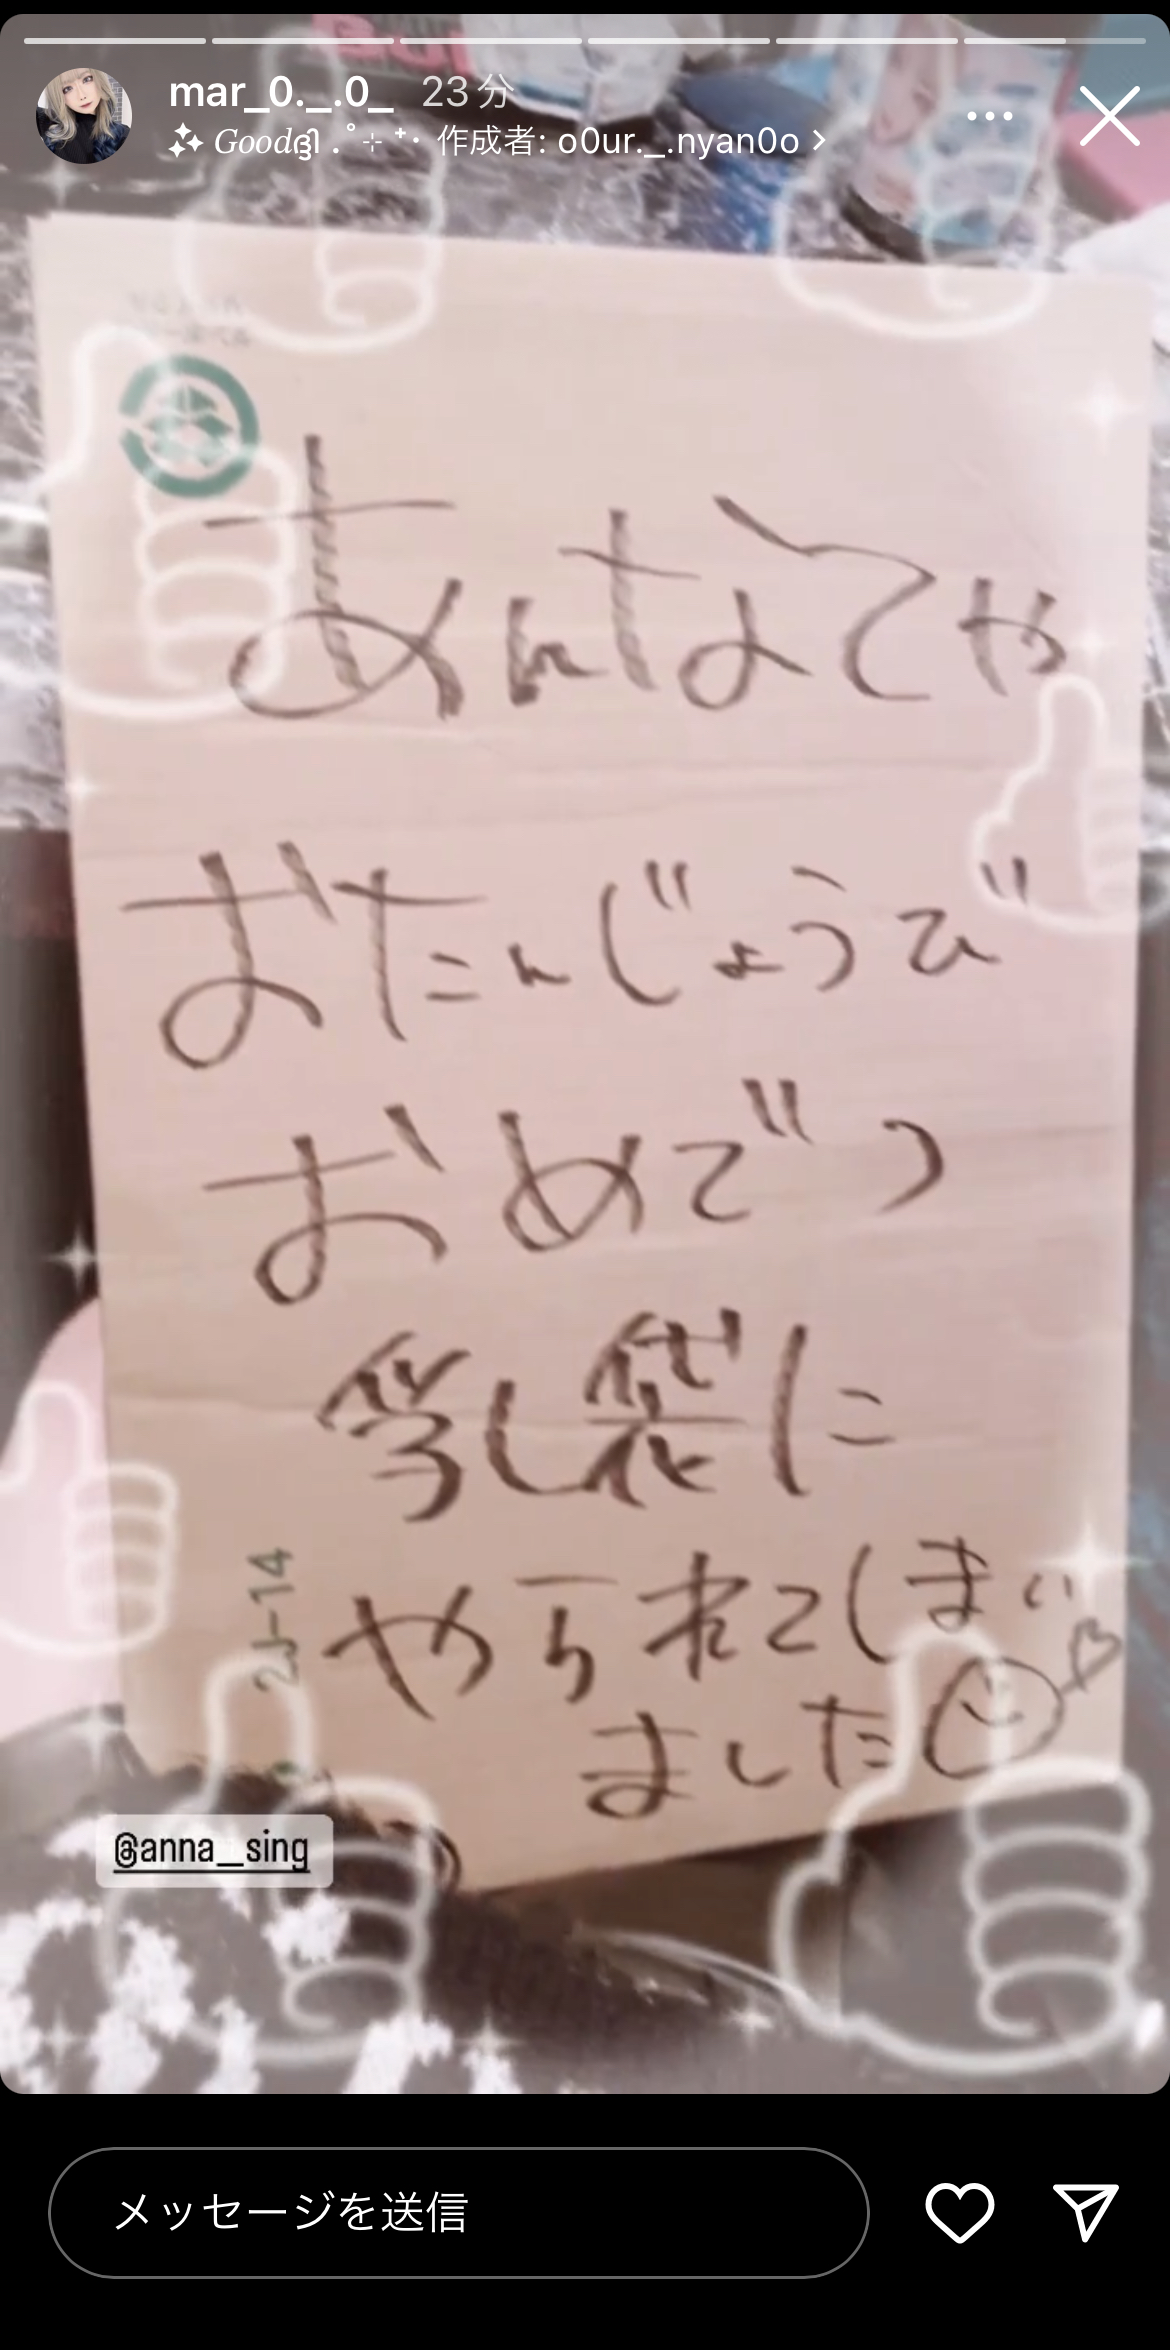 mar_0._.0_ 23分
Good 作成者: o0ur._.nyan0o
あんなてゃ
おたんじょうび
おめでつ
乳袋に
やられてしまい
ました
2J-14
@anna__sing
メッセージを送信